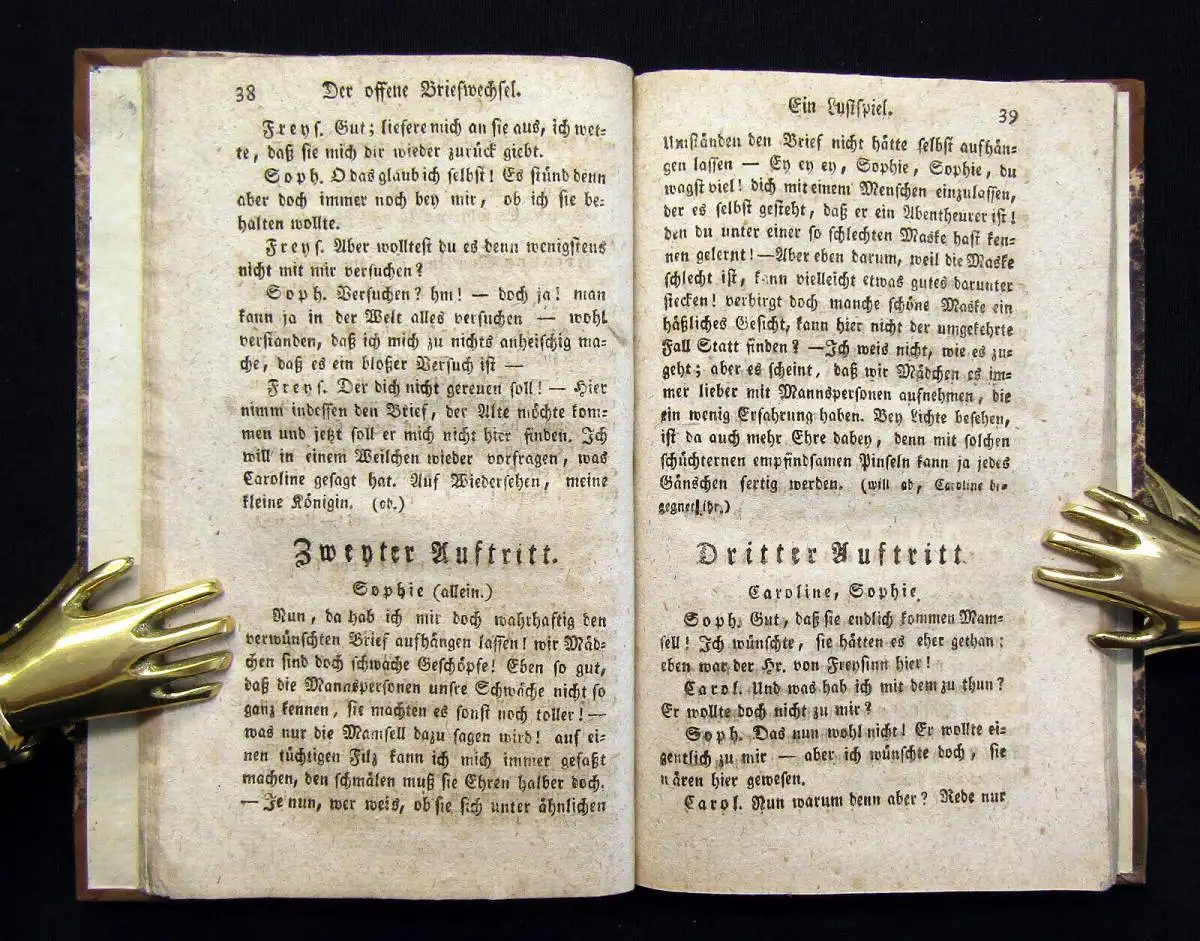 38
Der offene Briefwechsel.
Freys. Gut; liefere mich an sie aus, ich wet-
te, daß sie mich dir wieder zurück giebt.
Soph. O das glaub ich selbst! Es stünd denn
aber doch immer noch bey mir, ob ich sie be-
halten wollte.
Freys. Aber wolltest du es denn wenigstens
nicht mit mir versuchen?
Soph. Versuchen? hm! — doch ja! man
kann ja in der Welt alles versuchen — wohl
verstanden, daß ich mich zu nichts anheischig ma-
che, daß es ein bloßer Versuch ist —
Freys. Der dich nicht gereuen soll! — Hier
nimm indessen den Brief, der Alte möchte kom-
men und jetzt soll er mich nicht hier finden. Ich
will in einem Weilchen wieder vorfragen, was
Caroline gesagt hat. Auf Wiedersehen, meine
kleine Königin. (ab.)
Zweyter Auftritt.
Sophie (allein.)
Nun, da hab ich mir doch wahrhaftig den
verwünschten Brief aufhängen lassen! wir Mäd-
chen sind doch schwache Geschöpfe! Eben so gut,
daß die Mannspersonen unsre Schwäche nicht so
ganz kennen, sie machten es sonst noch toller! —
was nur die Mamsell dazu sagen wird! auf ei-
nen tüchtigen Filz kann ich mich immer gefaßt
machen, den schmälen muß sie Ehren halber doch.
— Je nun, wer weis, ob sie sich unter ähnlichen
Ein Lustspiel.
39
Umständen den Brief nicht hätte selbst aufhän-
gen lassen — Ey ey ey, Sophie, Sophie, du
wagst viel! dich mit einem Menschen einzulassen,
der es selbst gesteht, daß er ein Abentheurer ist!
den du unter einer so schlechten Maske hast ken-
nen gelernt! — Aber eben darum, weil die Maske
schlecht ist, kann vielleicht etwas gutes darunter
stecken! verbirgt doch manche schöne Maske ein
häßliches Gesicht, kann hier nicht der umgekehrte
Fall Statt finden? — Ich weis nicht, wie es zu-
geht; aber es scheint, daß wir Mädchen es im-
mer lieber mit Mannspersonen aufnehmen, die
ein wenig Erfahrung haben. Bey Lichte besehen,
ist da auch mehr Ehre dabey, denn mit solchen
schüchternen empfindsamen Pinseln kann ja jedes
Gänschen fertig werden. (will ab, Caroline be-
gegnet ihr.)
Dritter Auftritt.
Caroline, Sophie.
Soph. Gut, daß sie endlich kommen Mam-
sell! Ich wünschte, sie hätten es eher gethan;
eben war der Hr. von Freysinn hier!
Carol. Und was hab ich mit dem zu thun?
Er wollte doch nicht zu mir?
Soph. Das nun wohl nicht! Er wollte ei-
gentlich zu mir — aber ich wünschte doch, sie
wären hier gewesen.
Carol. Nun warum denn aber? Rede nur